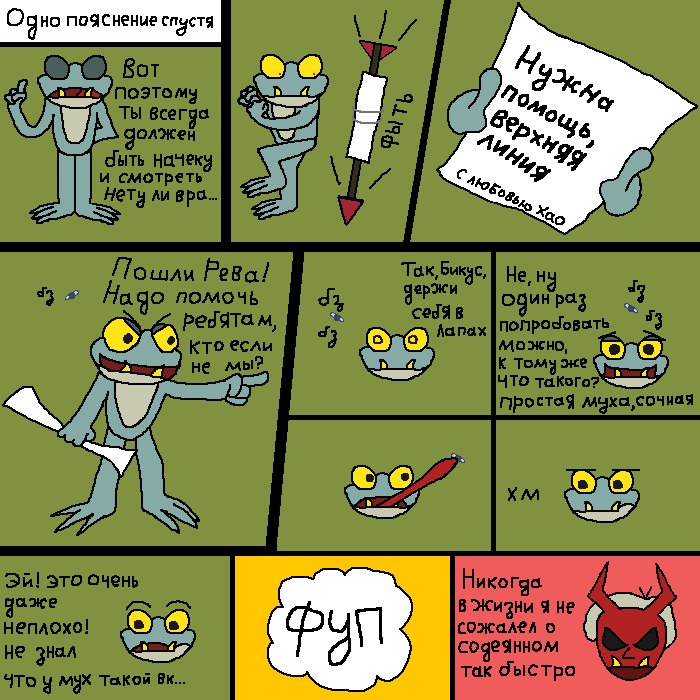 Одно пояснение спустя
Вот
поэтому
ты всегда
должен
быть начеку
и смотреть
нету ли вра...
фыть
Нужна
помощь,
верхняя
линия
с любовью Хао
Пошли Рева!
Надо помочь
ребятам,
кто если
не мы?
бз
Так, Бикус,
держи
себя в
лапах
бз
бз
Не, ну
один раз
попробовать
можно,
к тому же
что такого?
простая муха, сочная
бз
бз
хм
Эй! это очень
даже
неплохо!
не знал
что у мух такой вк...
ФУП
Никогда
в жизни я не
сожалел о
содеянном
так быстро